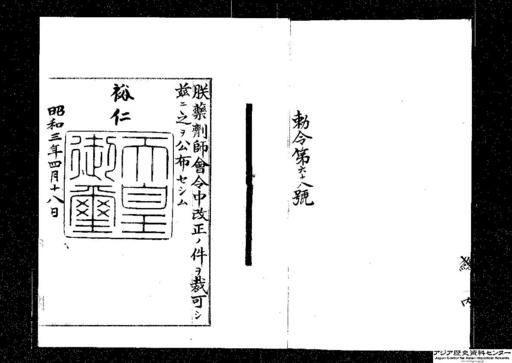 勅令第六十八號
朕藥劑師會令中改正ノ件ヲ裁可シ
玆ニ之ヲ公布セシム
裕仁
天皇
御璽
昭和三年四月十八日
内
アジア歴史資料センター
Japan Center for Asian Historical Records